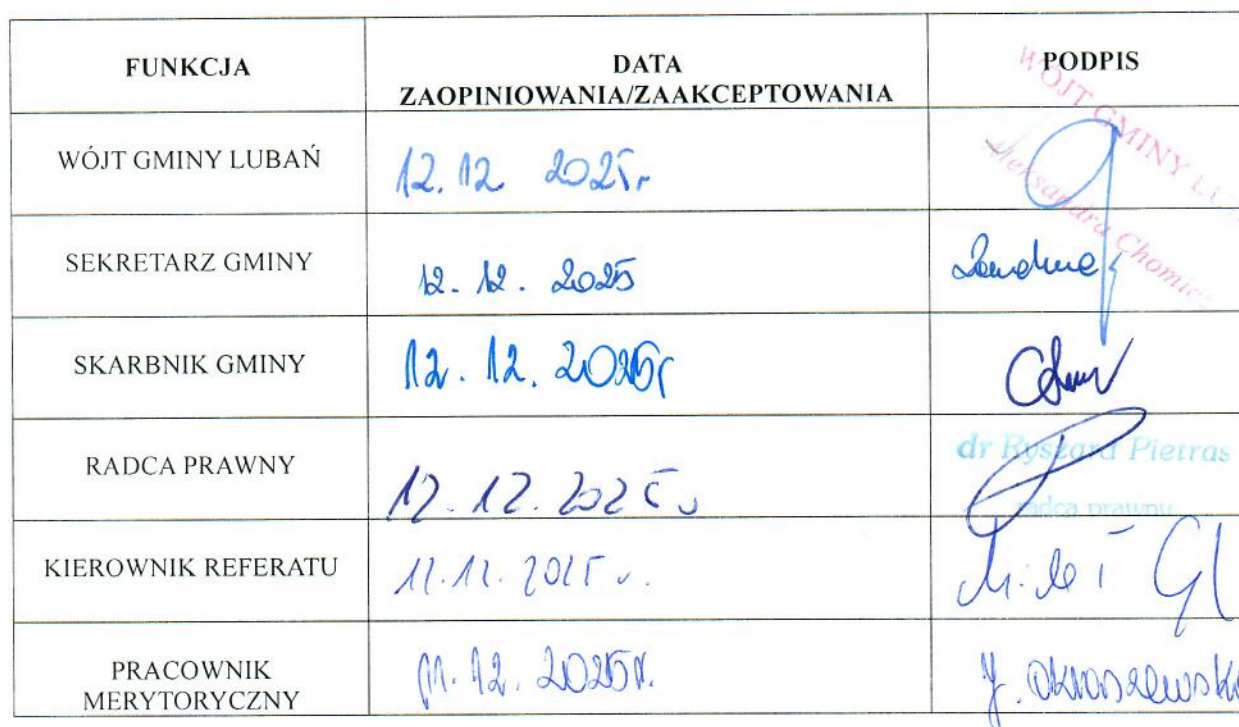 FUNKCJA
DATA
ZAOPINIOWANIA/ZAAKCEPTOWANIA
PODPIS
WÓJT GMINY
Aleksandra Chomicz
WÓJT GMINY LUBAŃ
12.12 2025r
SEKRETARZ GMINY
12.12.2025
SKARBNIK GMINY
12.12.2025r
RADCA PRAWNY
12.12.2025 r
dr Ryszard Pietras
radca prawny
KIEROWNIK REFERATU
12.12.2025 r.
PRACOWNIK
MERYTORYCZNY
11.12.2025r.